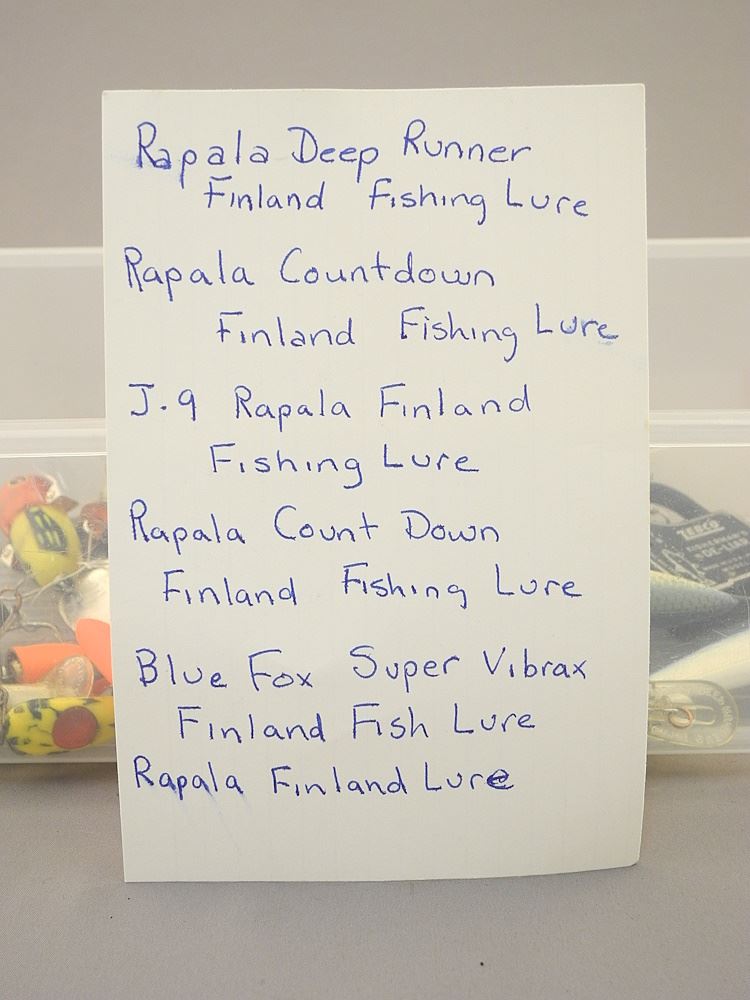 Rapala Deep Runner
Finland Fishing Lure
Rapala Countdown
Finland Fishing Lure
J.9 Rapala Finland
Fishing Lure
Rapala Count Down
Finland Fishing Lure
Blue Fox Super Vibrax
Finland Fish Lure
Rapala Finland Lure
ZEBCO